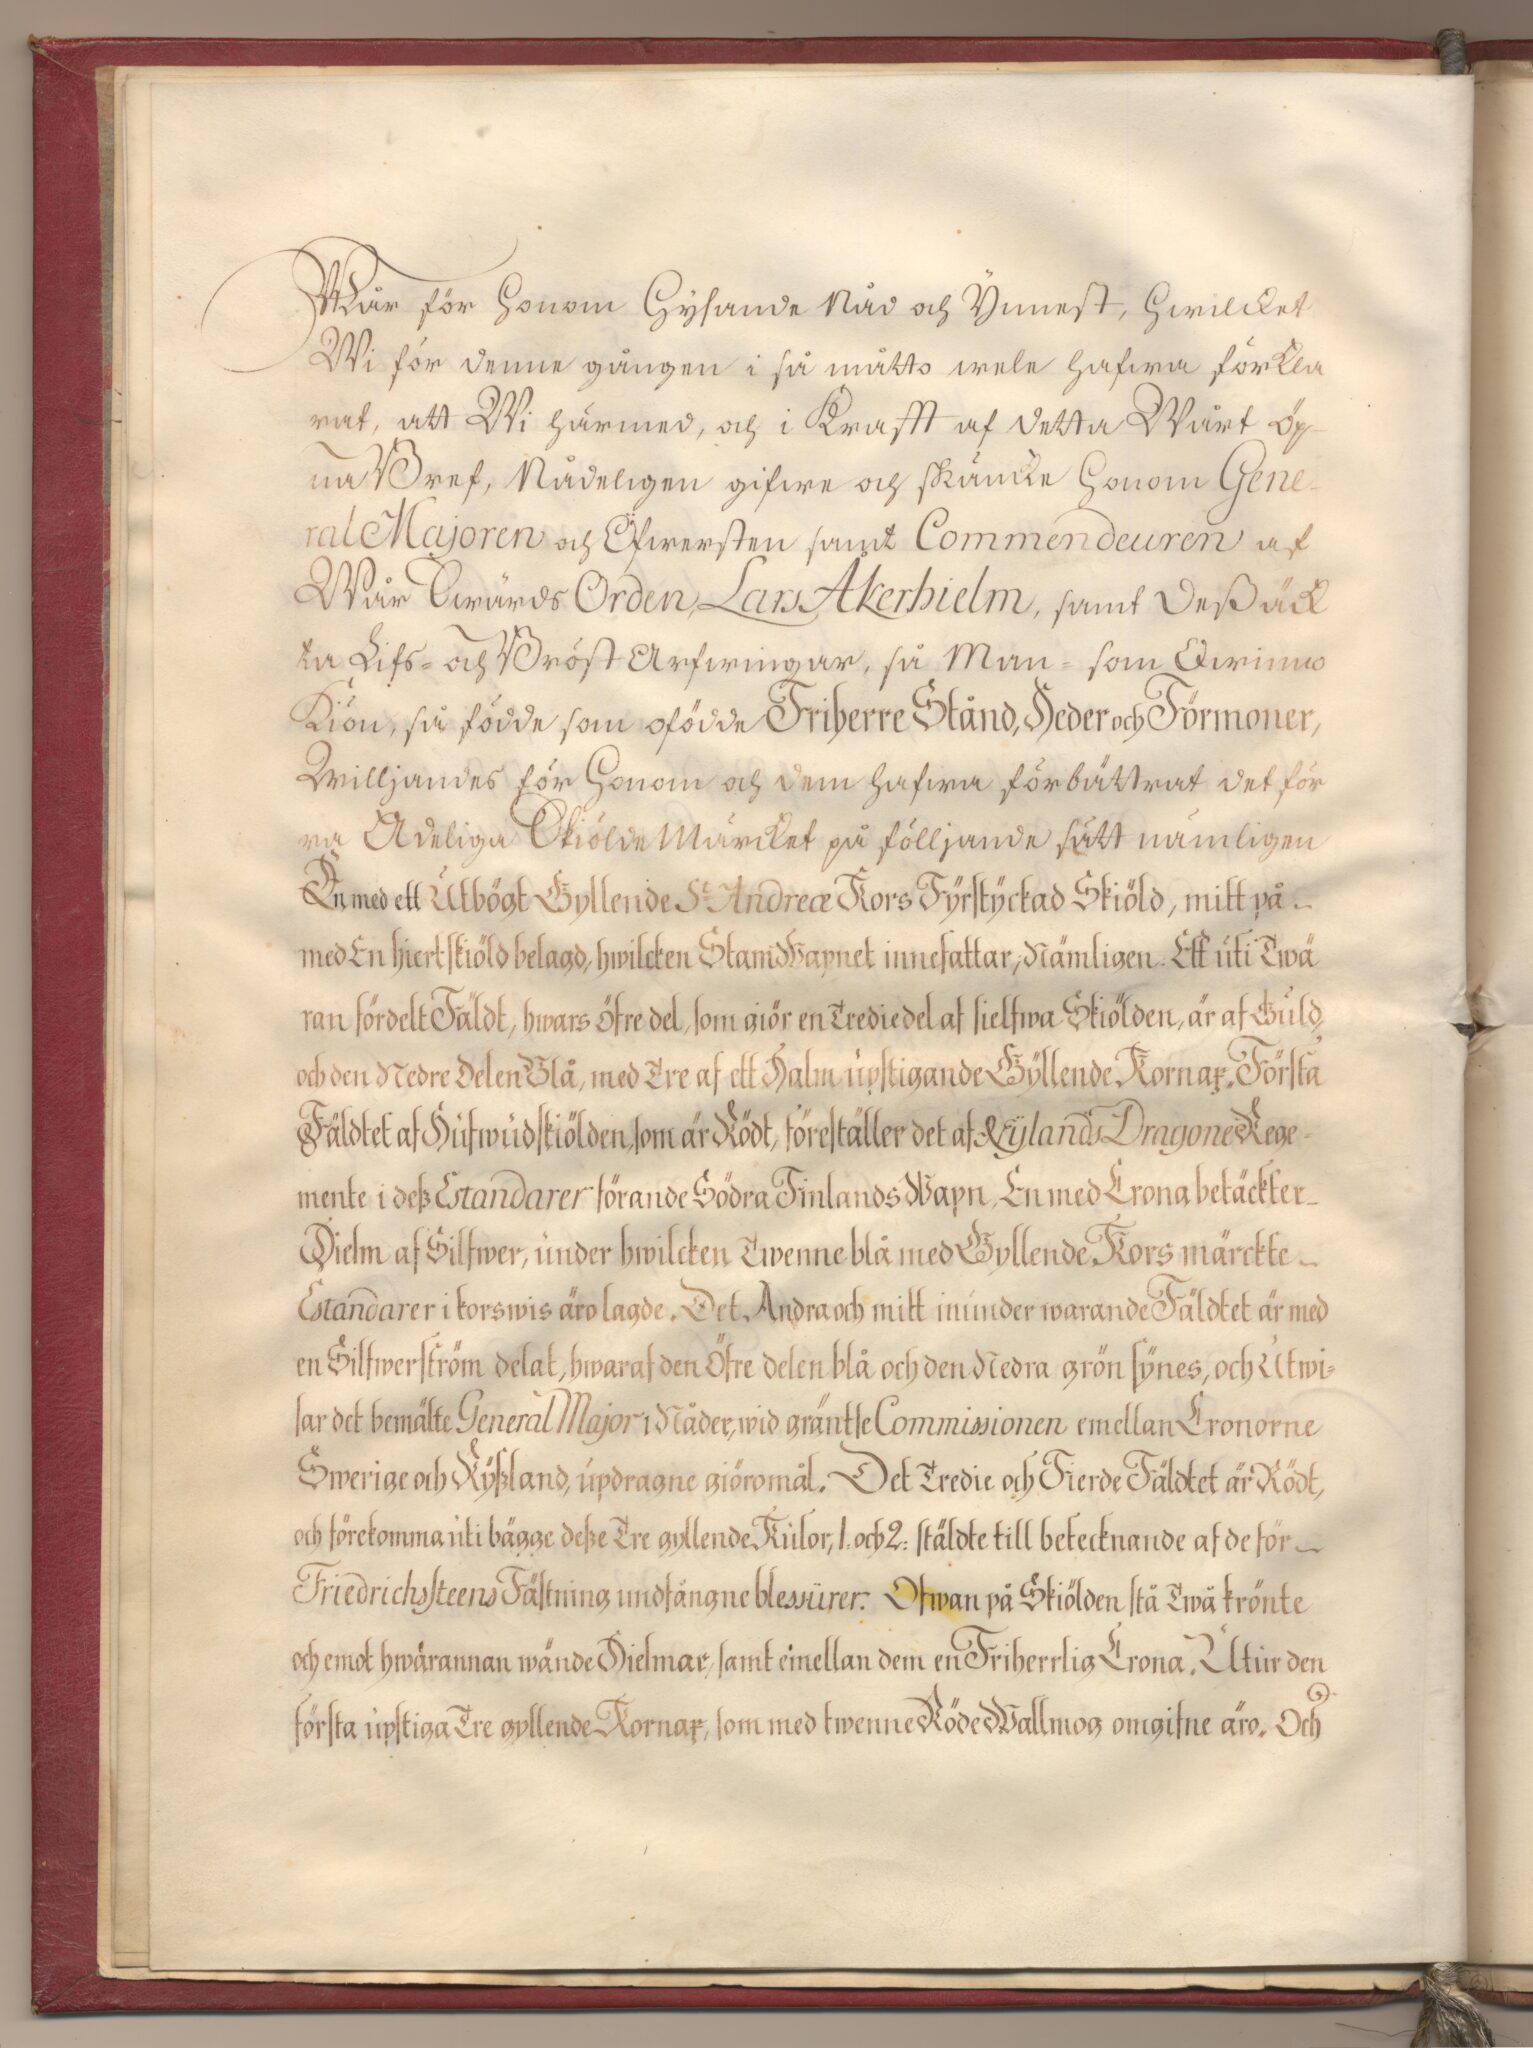 Wår för Honom Hysande Nåd och Ynnest, Hwilcket
Wi för denne gången i så måtto wele hafwa förkla
rat, att Wi härmed, och i Krafft af detta Wårt öp-
na Bref, Nådeligen gifwe och skäncke Honom Gene-
ral Majoren och Öfwersten samt Commendeuren af
Wår Swärds Orden, Lars Åkerhielm, samt Deß äck
ta Lifs- och Bröst Arfwingar, så Man- som Qwinno
Kiön, så födde som ofödde Friherre Stånd, Heder och Förmoner,
Williandes för Honom och dem hafwa förbättrat det för
ra Adeliga Skiölde Märcket på följjande sätt nämligen
En med ett Utbögt Gyllende St Andreæ Kors Fyrstyckad Skiöld, mitt på
med En hiertskiöld belagd, hwilcken StamWapnet innefattar, Nämligen Ett uti Twä
ran fördelt Fäldt, hwars öfre del, som giör en Trediedel af sielfwa Skiölden, är af Guld,
och den Nedre Delen Blå, med Tre af ett Halm upstigande Gyllende Kornax. Första
Fäldtet af Hufwudskiölden, som är Rödt, föreställer det af Nylands Dragone Rege-
mente i deß Estandarer förande Södra Finlands Wapn, En med Crona betäckter
Hielm af Silfwer, under hwilcken Twenne blå med Gyllende Kors märckte
Estandarer i korswis äro lagde. Det Andra och mitt inunder warande Fäldtet är med
en Silfwerström delat, hwaraf den Öfre delen blå och den Nedra grön synes, och Utwi=
sar det bemälte General Major i Nåder, wid gräntse Commissionen emellan Cronorne
Swerige och Ryßland, updragne giöromål. Det Tredie och Fierde Fäldtet är Rödt,
och förekomma uti bägge deße Tre gyllende Kulor, 1. och 2: stäldte till betecknande af de för
Friedrichssteens Fästning undfångne blessurer. Ofwan på Skiölden stå Twå krönte
och emot hwarannan wände Hielmar, samt emellan dem en Friherrlig Crona. Utur den
första upstiga Tre gyllende Kornax, som med twenne Röde Wallmog omgifne äro. Och